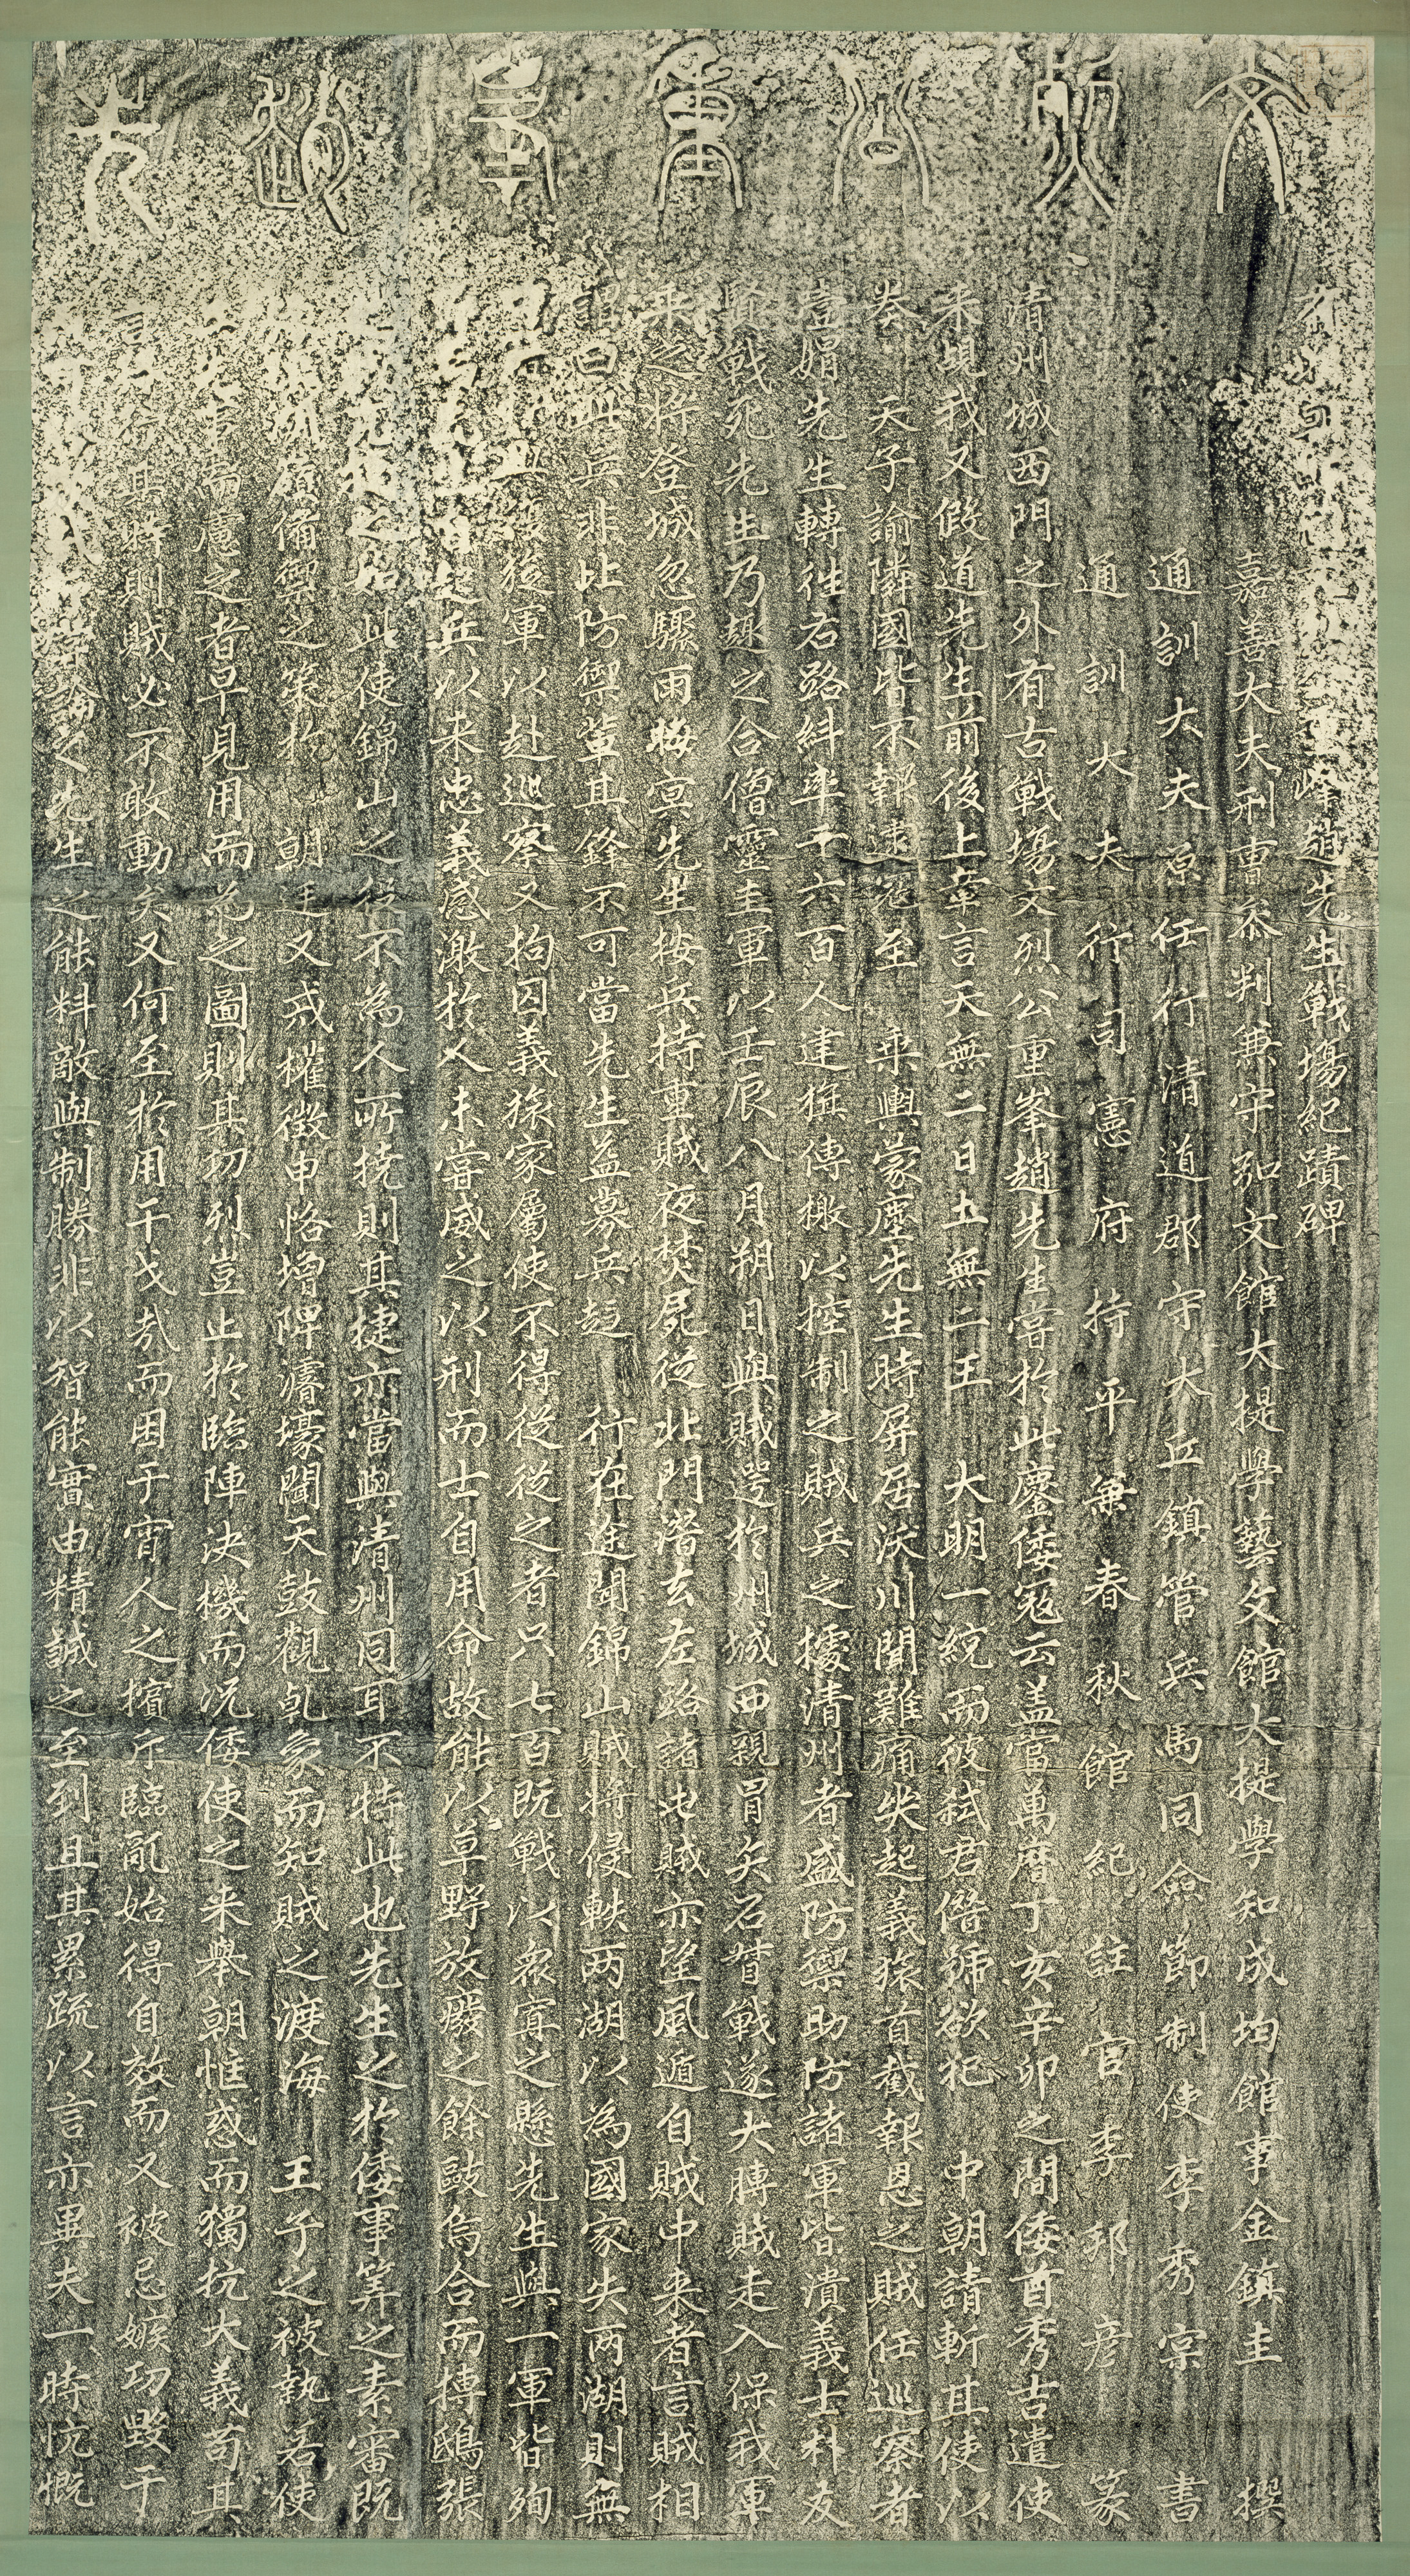 文烈公重峯趙先
重峰趙先生戰場紀蹟碑
嘉善大夫刑曹參判兼守弘文館大提學藝文館大提學知成均館事金鎮圭 撰
通訓大夫原任行清道郡守大丘鎮管兵馬同僉節制使李秀宗 書
通訓大夫行司憲府持平兼春秋館紀註官李邦彦 篆
清州城西門之外有古戰場文烈公重峯趙先生嘗於此鏖倭寇云盖當萬曆丁亥辛卯之間倭酋秀吉遣使
来覘我又假道先生前後上章言天無二日土無二王 大明一統而彼弑君僭號欲犯 中朝請斬其使以
奏 天子諭隣國皆不報逮寇至 乘輿蒙塵先生時屏居沃川聞難痛哭起義旅首截報恩之賊任巡察者
豈媢先生轉徃右路糾率千六百人建旗傳檄以控制之賊兵之據清州者盛防禦助防諸軍皆潰義士朴友
賢戰死先生乃趣之合僧靈圭軍以壬辰八月朔日與賊遌於州城西親冒矢石督戰遂大勝賊走入保我軍
乘之將登城忽驟雨晦冥先生按兵持重賊夜焚屍從北門潛去左路諸屯賊亦望風遁自賊中来者言賊相
謂曰此兵非比防禦輩其鋒不可當先生益募兵趍 行在途聞錦山賊將侵軼两湖以為國家失两湖則無
後軍以赴巡察又拘囚義旅家屬使不得從從之者只七百既戰以衆寡之懸先生與一軍皆殉
之兵以来忠義感激於人未嘗威之以刑而士自用命故能以草野放廢之餘敺烏合而摶鴟張
此使錦山之役不為人所撓則其捷亦當與清州同耳不特此也先生之於倭事筭之素審既
備禦之策於 朝廷又戒權徵申恪增陴濬壕聞天鼓觀乹象而知賊之渡海 王子之被執若使
而慮之者早見用而為之圖則其功烈豈止於臨陣決機而况倭使之来舉朝惟惑而獨抗大義苟其
言 行其時則賊必不敢動矣又何至於用干戈哉而困于宵人之擯斥臨亂始得自效而又被忌嫉功毁于
論之先生之能料敵與制勝非以智能實由精誠之至到且其累疏以言亦異夫一時忼慨